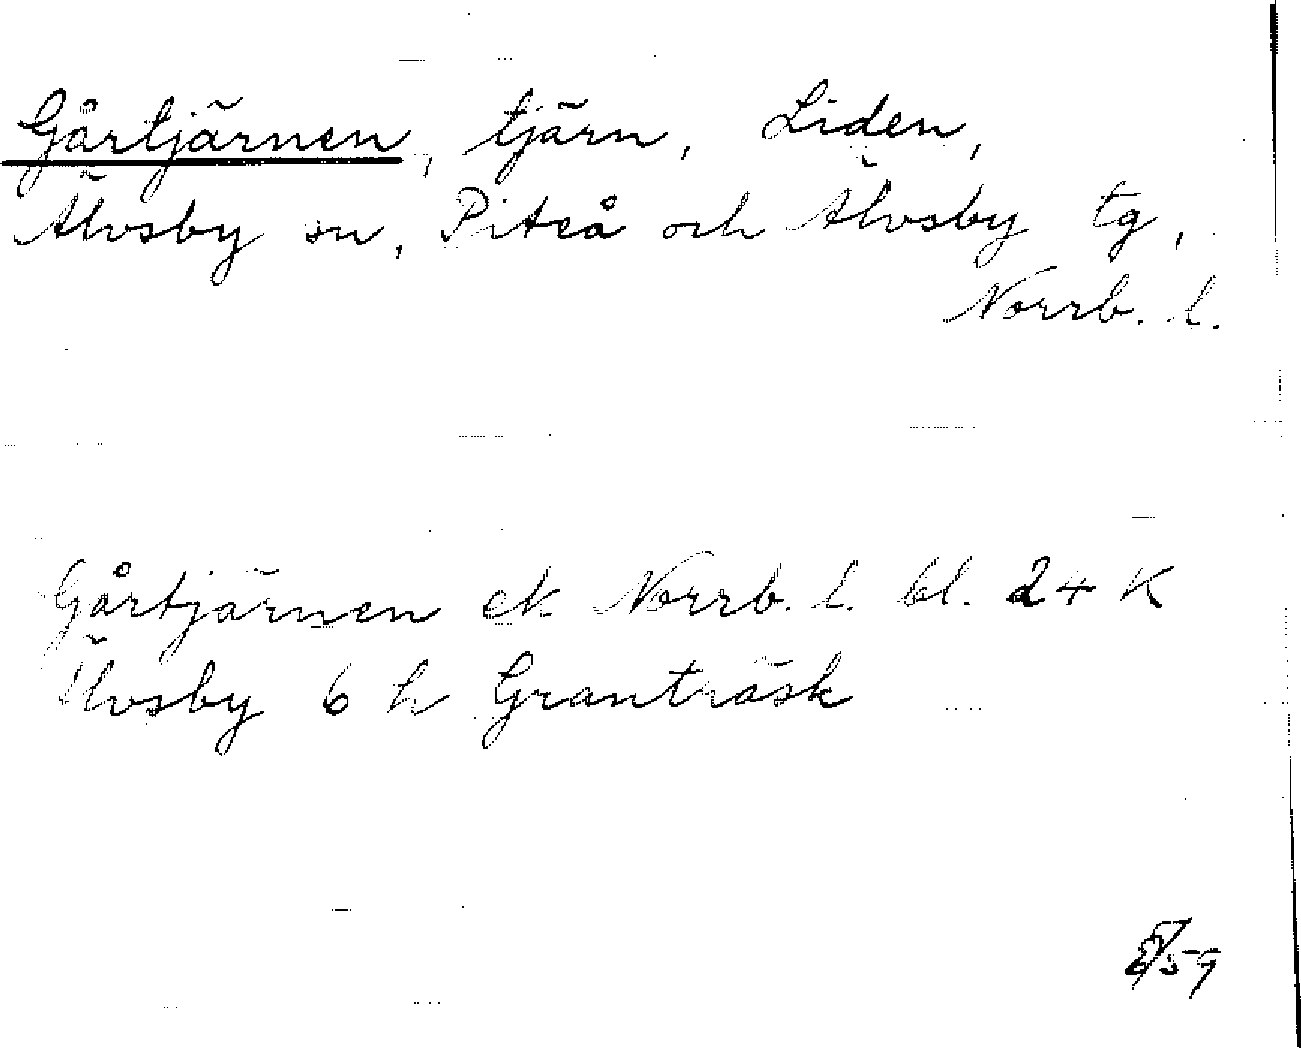 Gårtjärnen, tjärn, Liden,
Älvsby sn, Piteå och Älvsby tg,
Norrb. l.
Gårtjärnen ek Norrb. l. bl. 24 K
Älvsby 6 h Granträsk